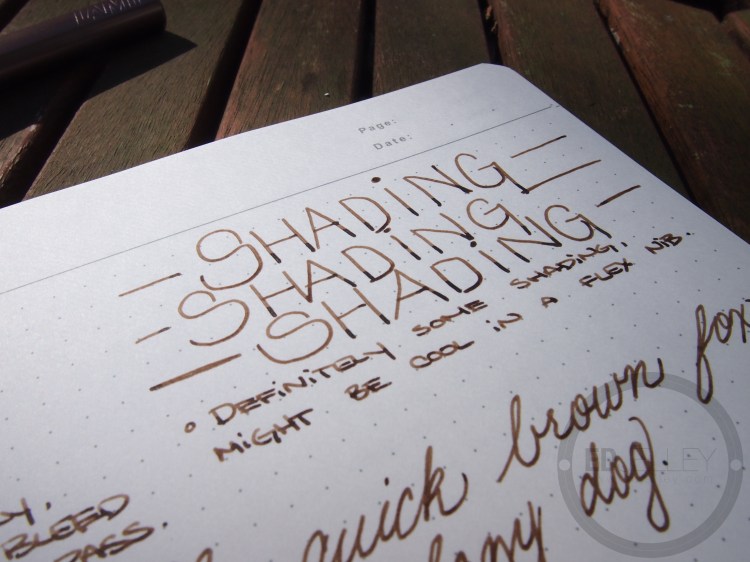 Page:
Date:
- SHADiNG -
- SHADiNG -
- SHADiNG -
• DEFiNiTELY SOME SHADiNG,
MiGHT BE COOL iN A FLEX NiB.
quick brown fox
dog.
BLEED
PASS.